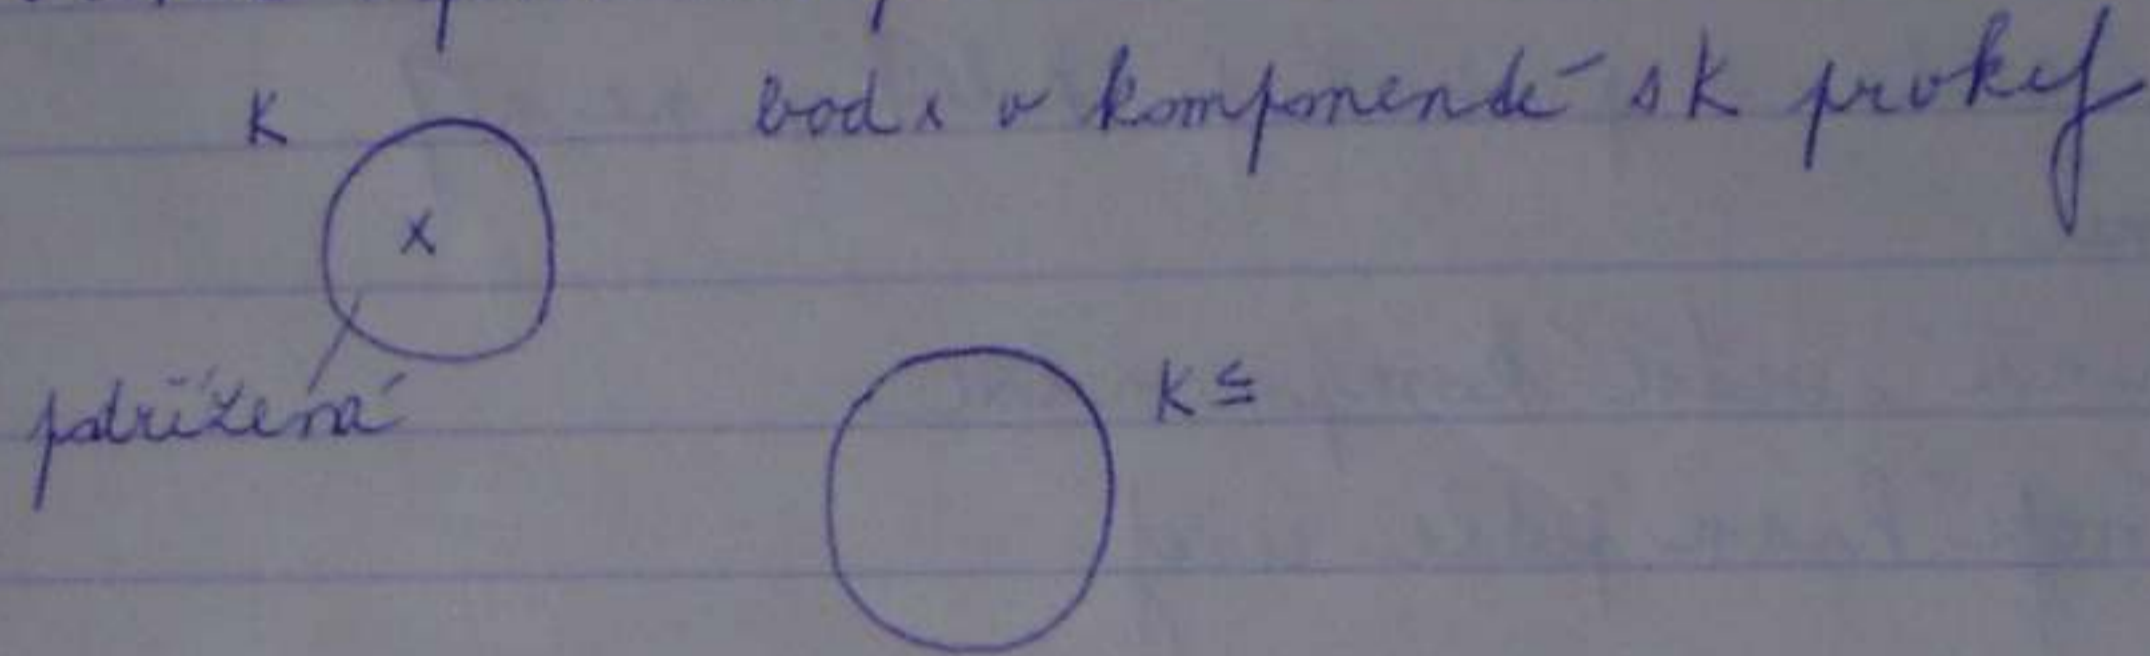 K
bod x v komponentě s k prvky
x
potřížená
K ≤